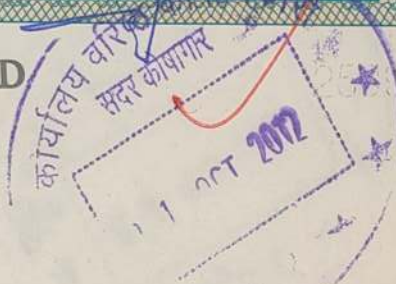 D
कार्यालय वरिष्ठ
सदर कोषागार
11 OCT 2012